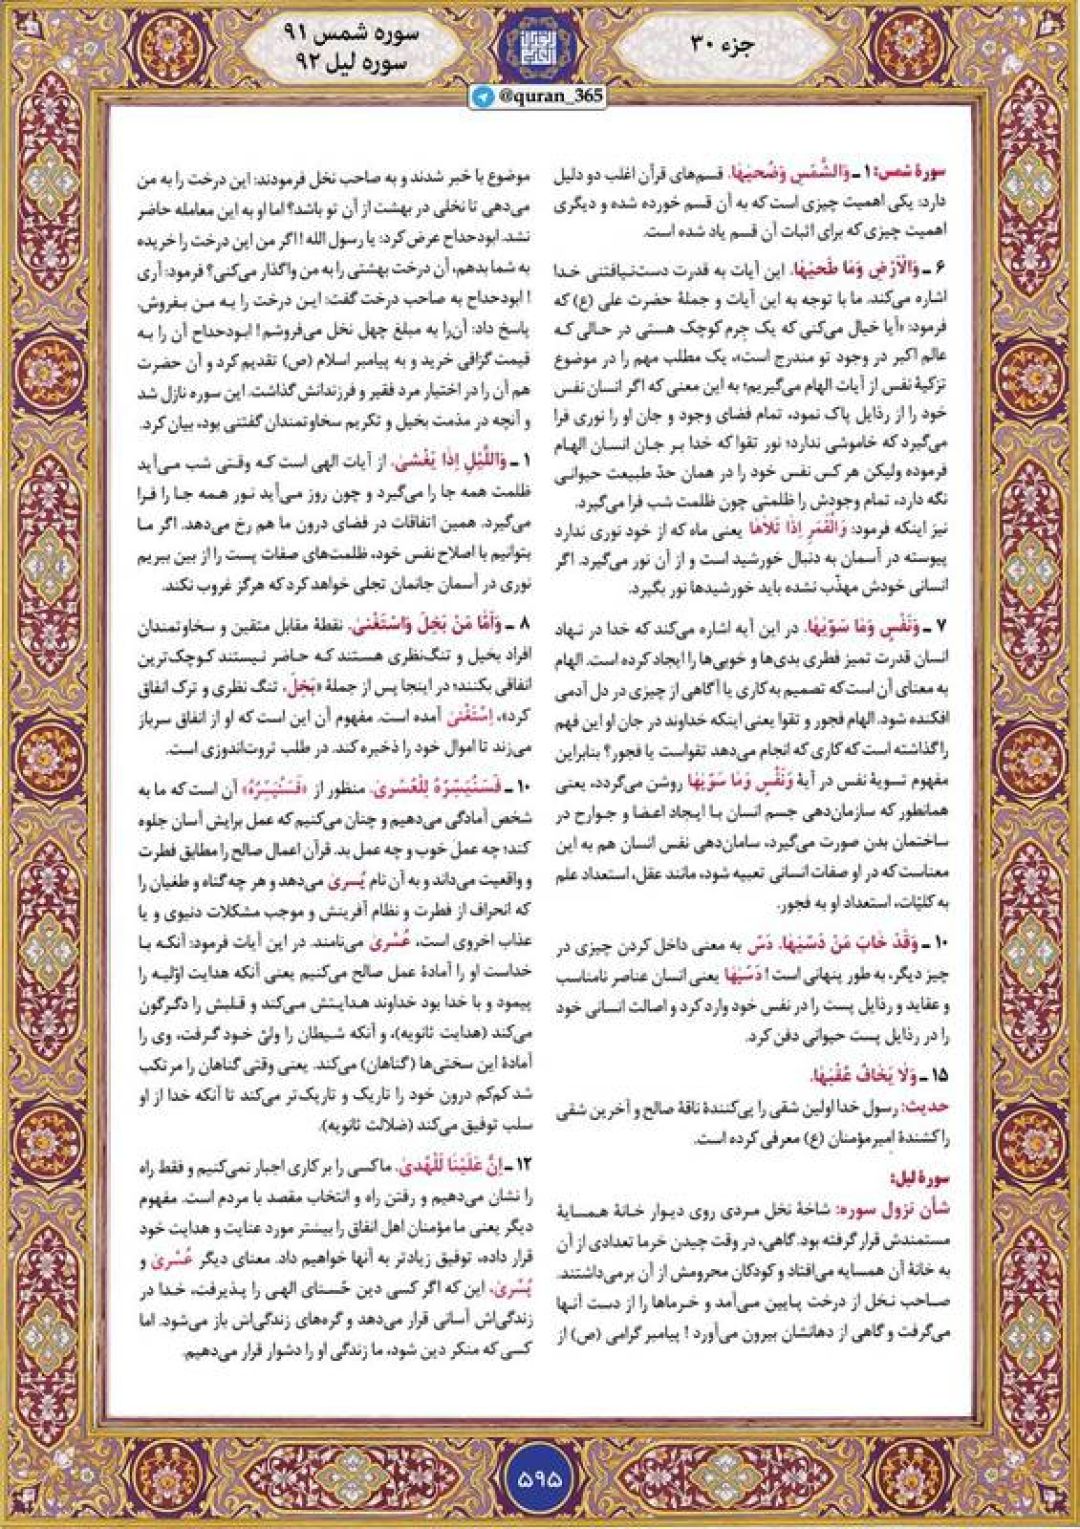 جزء ۳۰
سوره شمس ۹۱
سوره لیل ۹۲
@quran_365
سورهٔ شمس: ۱ ـ وَالشَّمْسِ وَضُحیٰهَا. قسم‌های قرآن اغلب دو دلیل
دارد: یکی اهمیت چیزی است که به آن قسم خورده شده و دیگری
اهمیت چیزی که برای اثبات آن قسم یاد شده است.
۶ ـ وَالْاَرْضِ وَمَا طَحیٰهَا. این آیات به قدرت دست‌نیافتنی خدا
اشاره می‌کند. ما با توجه به این آیات و جملهٔ حضرت علی (ع) که
فرمود: «آیا خیال می‌کنی که یک جِرم کوچک هستی در حالی که
عالم اکبر در وجود تو مندرج است»، یک مطلب مهم را در موضوع
تزکیهٔ نفس از آیات الهام می‌گیریم؛ به این معنی که اگر انسان نفس
خود را از رذایل پاک نمود، تمام فضای وجود و جان او را نوری فرا
می‌گیرد که خاموشی ندارد؛ نور تقوا که خدا بر جان انسان الهام
فرموده ولیکن هر کس نفس خود را در همان حدّ طبیعت حیوانی
نگه دارد، تمام وجودش را ظلمتی چون ظلمت شب فرا می‌گیرد.
نیز اینکه فرمود: وَالْقَمَرِ اِذَا تَلَاهَا یعنی ماه که از خود نوری ندارد
پیوسته در آسمان به دنبال خورشید است و از آن نور می‌گیرد. اگر
انسانی خودش مهذّب نشده باید خورشیدها نور بگیرد.
۷ ـ وَنَفْسٍ وَمَا سَوّیٰهَا. در این آیه اشاره می‌کند که خدا در نهاد
انسان قدرت تمیز فطری بدی‌ها و خوبی‌ها را ایجاد کرده است. الهام
به معنای آن است که تصمیم به‌کاری یا آگاهی از چیزی در دل آدمی
افکنده شود. الهام فجور و تقوا یعنی اینکه خداوند در جان او این فهم
را گذاشته است که کاری که انجام می‌دهد تقواست یا فجور؟ بنابراین
مفهوم تسویهٔ نفس در آیهٔ وَنَفْسٍ وَمَا سَوّیٰهَا روشن می‌گردد، یعنی
همانطور که سازمان‌دهی جسم انسان با ایجاد اعضا و جوارح در
ساختمان بدن صورت می‌گیرد، سامان‌دهی نفس انسان هم به این
معناست که در او صفات انسانی تعبیه شود، مانند عقل، استعداد علم
به کلیّات، استعداد او به فجور.
۱۰ ـ وَقَدْ خَابَ مَنْ دَسّیٰهَا. دَسّ به معنی داخل کردن چیزی در
چیز دیگر، به طور پنهانی است! دَسّیٰهَا یعنی انسان عناصر نامناسب
و عقاید و رذایل پست را در نفس خود وارد کرد و اصالت انسانی خود
را در رذایل پست حیوانی دفن کرد.
۱۵ ـ وَلَا یَخَافُ عُقْبٰهَا.
حدیث: رسول خدا اولین شقی را پی‌کنندهٔ ناقهٔ صالح و آخرین شقی
را کشندهٔ امیرمؤمنان (ع) معرفی کرده است.
سورهٔ لیل:
شأن نزول سوره: شاخهٔ نخل مردی روی دیوار خانهٔ همسایهٔ
مستمندش قرار گرفته بود. گاهی، در وقت چیدن خرما تعدادی از آن
به خانهٔ آن همسایه می‌افتاد و کودکان محرومش از آن برمی‌داشتند.
صاحب نخل از درخت پایین می‌آمد و خرماها را از دست آنها
می‌گرفت و گاهی از دهانشان بیرون می‌آورد! پیامبر گرامی (ص) از
موضوع با خبر شدند و به صاحب نخل فرمودند: این درخت را به من
می‌دهی تا نخلی در بهشت از آن تو باشد؟ اما او به این معامله حاضر
نشد. ابودحداح عرض کرد: یا رسول الله! اگر من این درخت را خریده
به شما بدهم، آن درخت بهشتی را به من واگذار می‌کنی؟ فرمود: آری
! ابودحداح به صاحب درخت گفت: این درخت را به من بفروش.
پاسخ داد: آن‌را به مبلغ چهل نخل می‌فروشم! ابودحداح آن را به
قیمت گزافی خرید و به پیامبر اسلام (ص) تقدیم کرد و آن حضرت
هم آن را در اختیار مرد فقیر و فرزندانش گذاشت. این سوره نازل شد
و آنچه در مذمت بخیل و تکریم سخاوتمندان گفتنی بود، بیان کرد.
۱ ـ وَاللَّیْلِ اِذَا یَغْشیٰ. از آیات الهی است که وقتی شب می‌آید
ظلمت همه جا را می‌گیرد و چون روز می‌آید نور همه جا را فرا
می‌گیرد. همین اتفاقات در فضای درون ما هم رخ می‌دهد. اگر ما
بتوانیم با اصلاح نفس خود، ظلمت‌های صفات پست را از بین ببریم
نوری در آسمان جانمان تجلی خواهد کرد که هرگز غروب نکند.
۸ ـ وَاَمَّا مَنْ بَخِلَ وَاسْتَغْنیٰ. نقطهٔ مقابل متقین و سخاوتمندان
افراد بخیل و تنگ‌نظری هستند که حاضر نیستند کوچک‌ترین
انفاقی بکنند؛ در اینجا پس از جملهٔ «بَخِلَ، تنگ نظری و ترک انفاق
کرد»، اِسْتَغْنیٰ آمده است. مفهوم آن این است که او از انفاق سرباز
می‌زند تا اموال خود را ذخیره کند. در طلب ثروت‌اندوزی است.
۱۰ ـ فَسَنُیَسِّرُهُ لِلْعُسْریٰ. منظور از «فَسَنُیَسِّرُهُ» آن است که ما به
شخص آمادگی می‌دهیم و چنان می‌کنیم که عمل برایش آسان جلوه
کند؛ چه عمل خوب و چه عمل بد. قرآن اعمال صالح را مطابق فطرت
و واقعیت می‌داند و به آن نام یُسریٰ می‌دهد و هر چه گناه و طغیان را
که انحراف از فطرت و نظام آفرینش و موجب مشکلات دنیوی و یا
عذاب اخروی است، عُسْریٰ می‌نامند. در این آیات فرمود: آنکه با
خداست او را آمادهٔ عمل صالح می‌کنیم یعنی آنکه هدایت اوّلیه را
پیمود و با خدا بود خداوند هدایتش می‌کند و قلبش را دگرگون
می‌کند (هدایت ثانویه)، و آنکه شیطان را ولیّ خود گرفت، وی را
آمادهٔ این سختی‌ها (گناهان) می‌کند. یعنی وقتی گناهان را مرتکب
شد کم‌کم درون خود را تاریک و تاریک‌تر می‌کند تا آنکه خدا از او
سلب توفیق می‌کند (ضلالت ثانویه).
۱۲ ـ اِنَّ عَلَیْنَا لَلْهُدیٰ. ما کسی را بر کاری اجبار نمی‌کنیم و فقط راه
را نشان می‌دهیم و رفتن راه و انتخاب مقصد با مردم است. مفهوم
دیگر یعنی ما مؤمنان اهل انفاق را بیشتر مورد عنایت و هدایت خود
قرار داده، توفیق زیادتر به آنها خواهیم داد. معنای دیگر عُسْریٰ و
یُسْریٰ، این که اگر کسی دین حُسنای الهی را پذیرفت، خدا در
زندگی‌اش آسانی قرار می‌دهد و گره‌های زندگی‌اش باز می‌شود. اما
کسی که منکر دین شود، ما زندگی او را دشوار قرار می‌دهیم.
۵۹۵